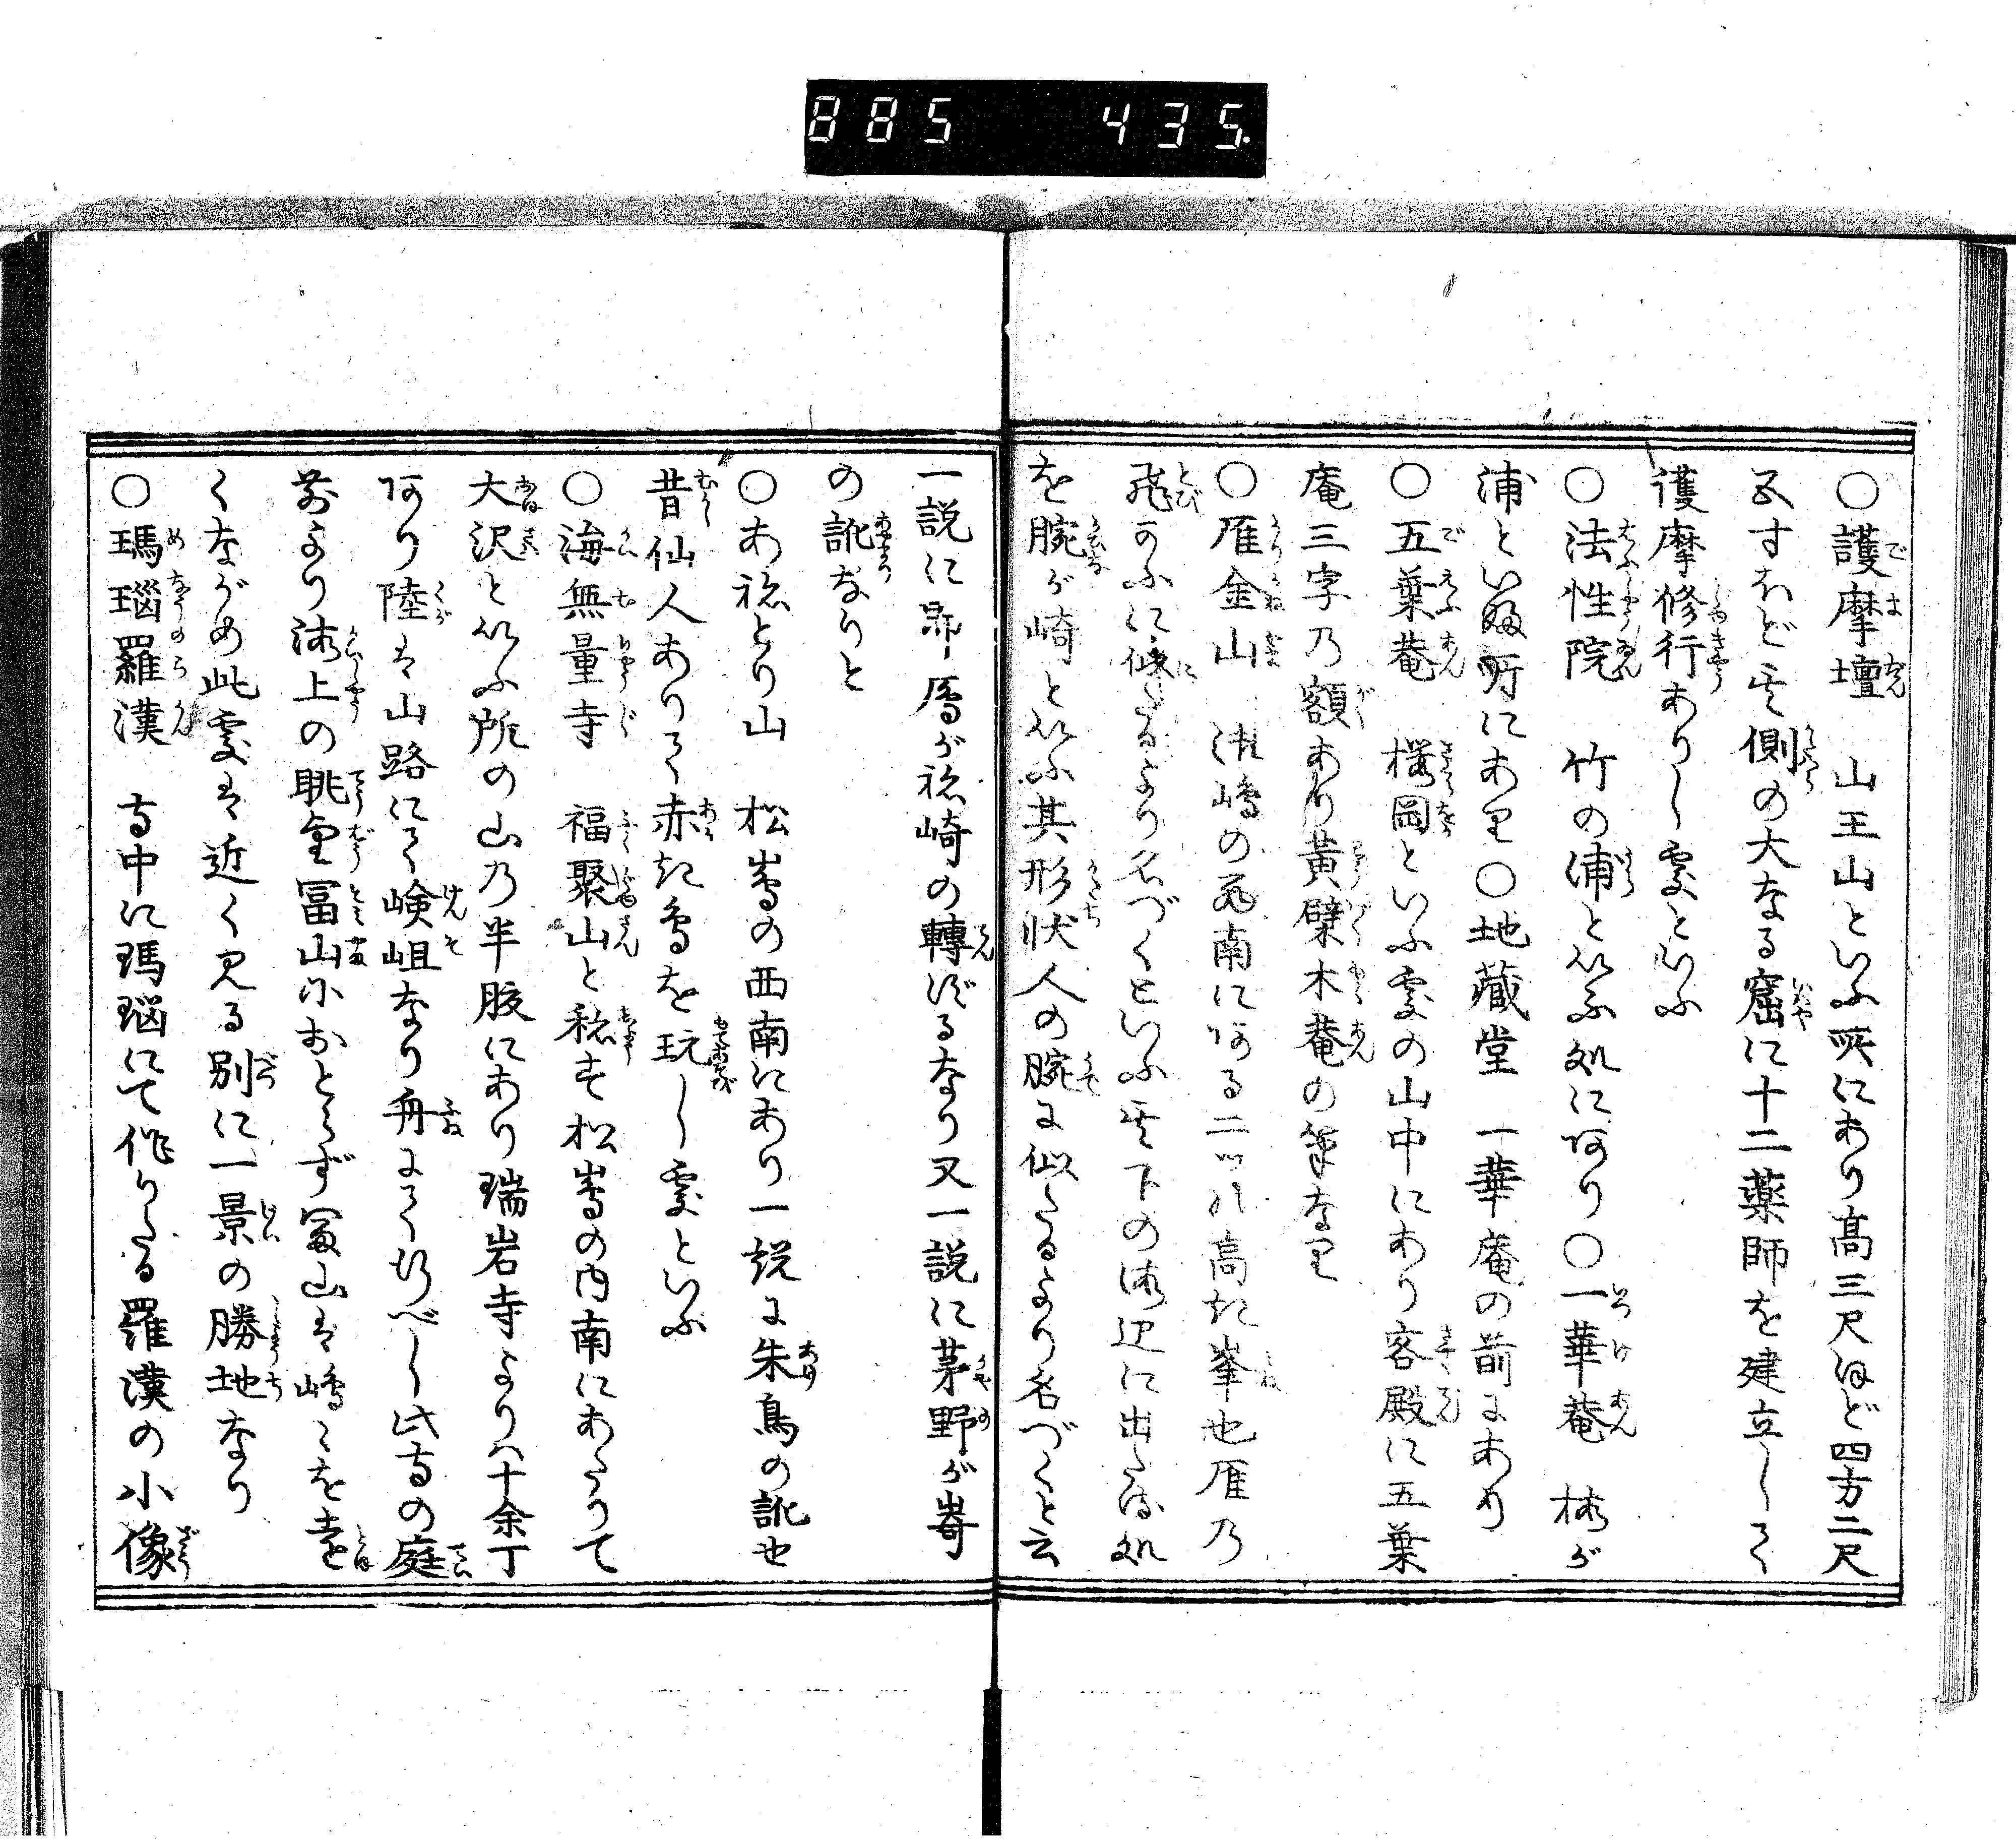 885 435.
〇護摩壇　山王山といふ所にあり高三尺ほど四方二尺
五寸ほど其側の大なる窟に十二薬師を建立して
護摩修行ありし処といふ
〇法性院　竹の浦といふ処にあり〇一華菴　梅が
浦といふ所にあり〇地蔵堂　一華庵の前にあり
〇五葉菴　桜岡といふ処の山中にあり客殿に五葉
庵三字の額あり黄檗木菴の筆なり
〇雁金山　津嶋の西南にある二ツの高き峯也雁の
飛かふに似たるより名づくといふ其下の海辺に出たる処
を腕が崎といふ其形状人の腕に似たるより名づくと云
一説に歸鴈が稔崎の轉ずるなり又一説に茅野が崎
の訛なりと
〇あねとり山　松嶌の西南にあり一説に朱鳥の訛也
昔仙人ありて赤き鳥を玩し処といふ
〇海無量寺　福聚山と称す松嶌の内南にあたりて
大沢といふ所の山の半腹にあり瑞岩寺より八十余丁
あり陸は山路にて嶮岨なり舟にて行べし此寺の庭
前より海上の眺望冨山におとらず冨山は嶋々を遠
くながめ此処は近く見る別に一景の勝地なり
〇瑪瑙羅漢　寺中に瑪瑙にて作りたる羅漢の小像